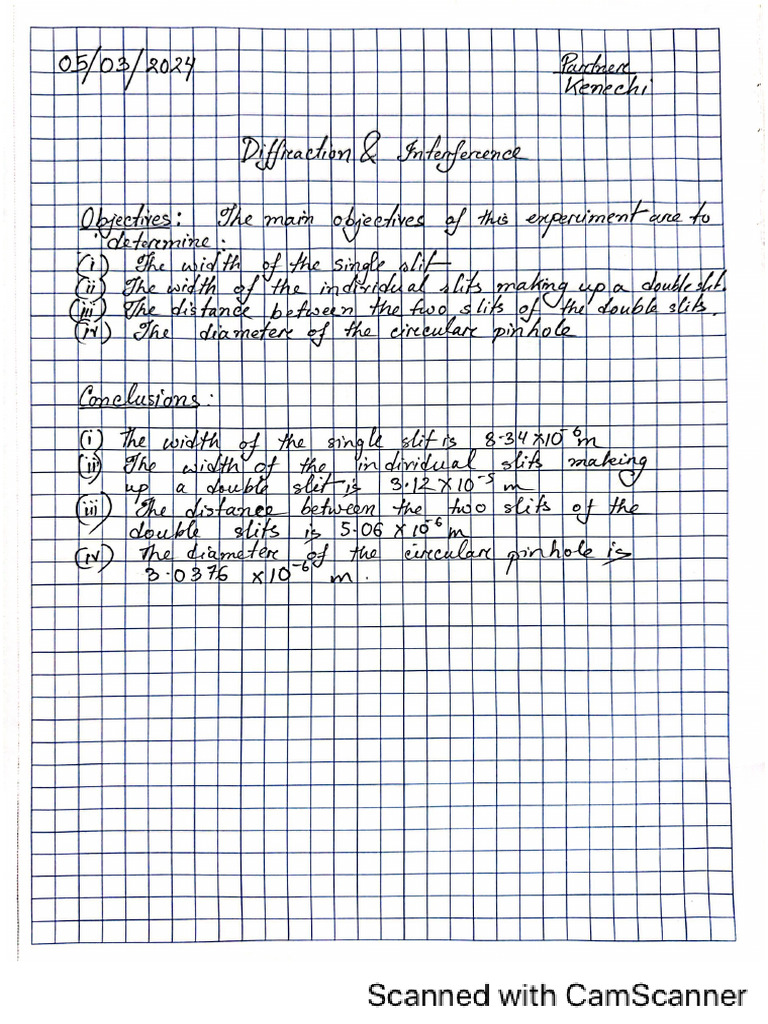 05/03/2024
Partner
Kenechi
Diffraction & Interference
Objectives: The main objectives of this experiment are to
determine:
(i) The width of the single slit
(ii) The width of the individual slits making up a double slit.
(iii) The distance between the two slits of the double slits.
(iv) The diameter of the circular pinhole
Conclusions:
(i) The width of the single slit is 8.34 × 10⁻⁶ m
(ii) The width of the individual slits making
up a double slit is 3.12 × 10⁻⁵ m
(iii) The distance between the two slits of the
double slits is 5.06 × 10⁻⁶ m
(iv) The diameter of the circular pinhole is
3.0376 × 10⁻⁶ m.
Scanned with CamScanner